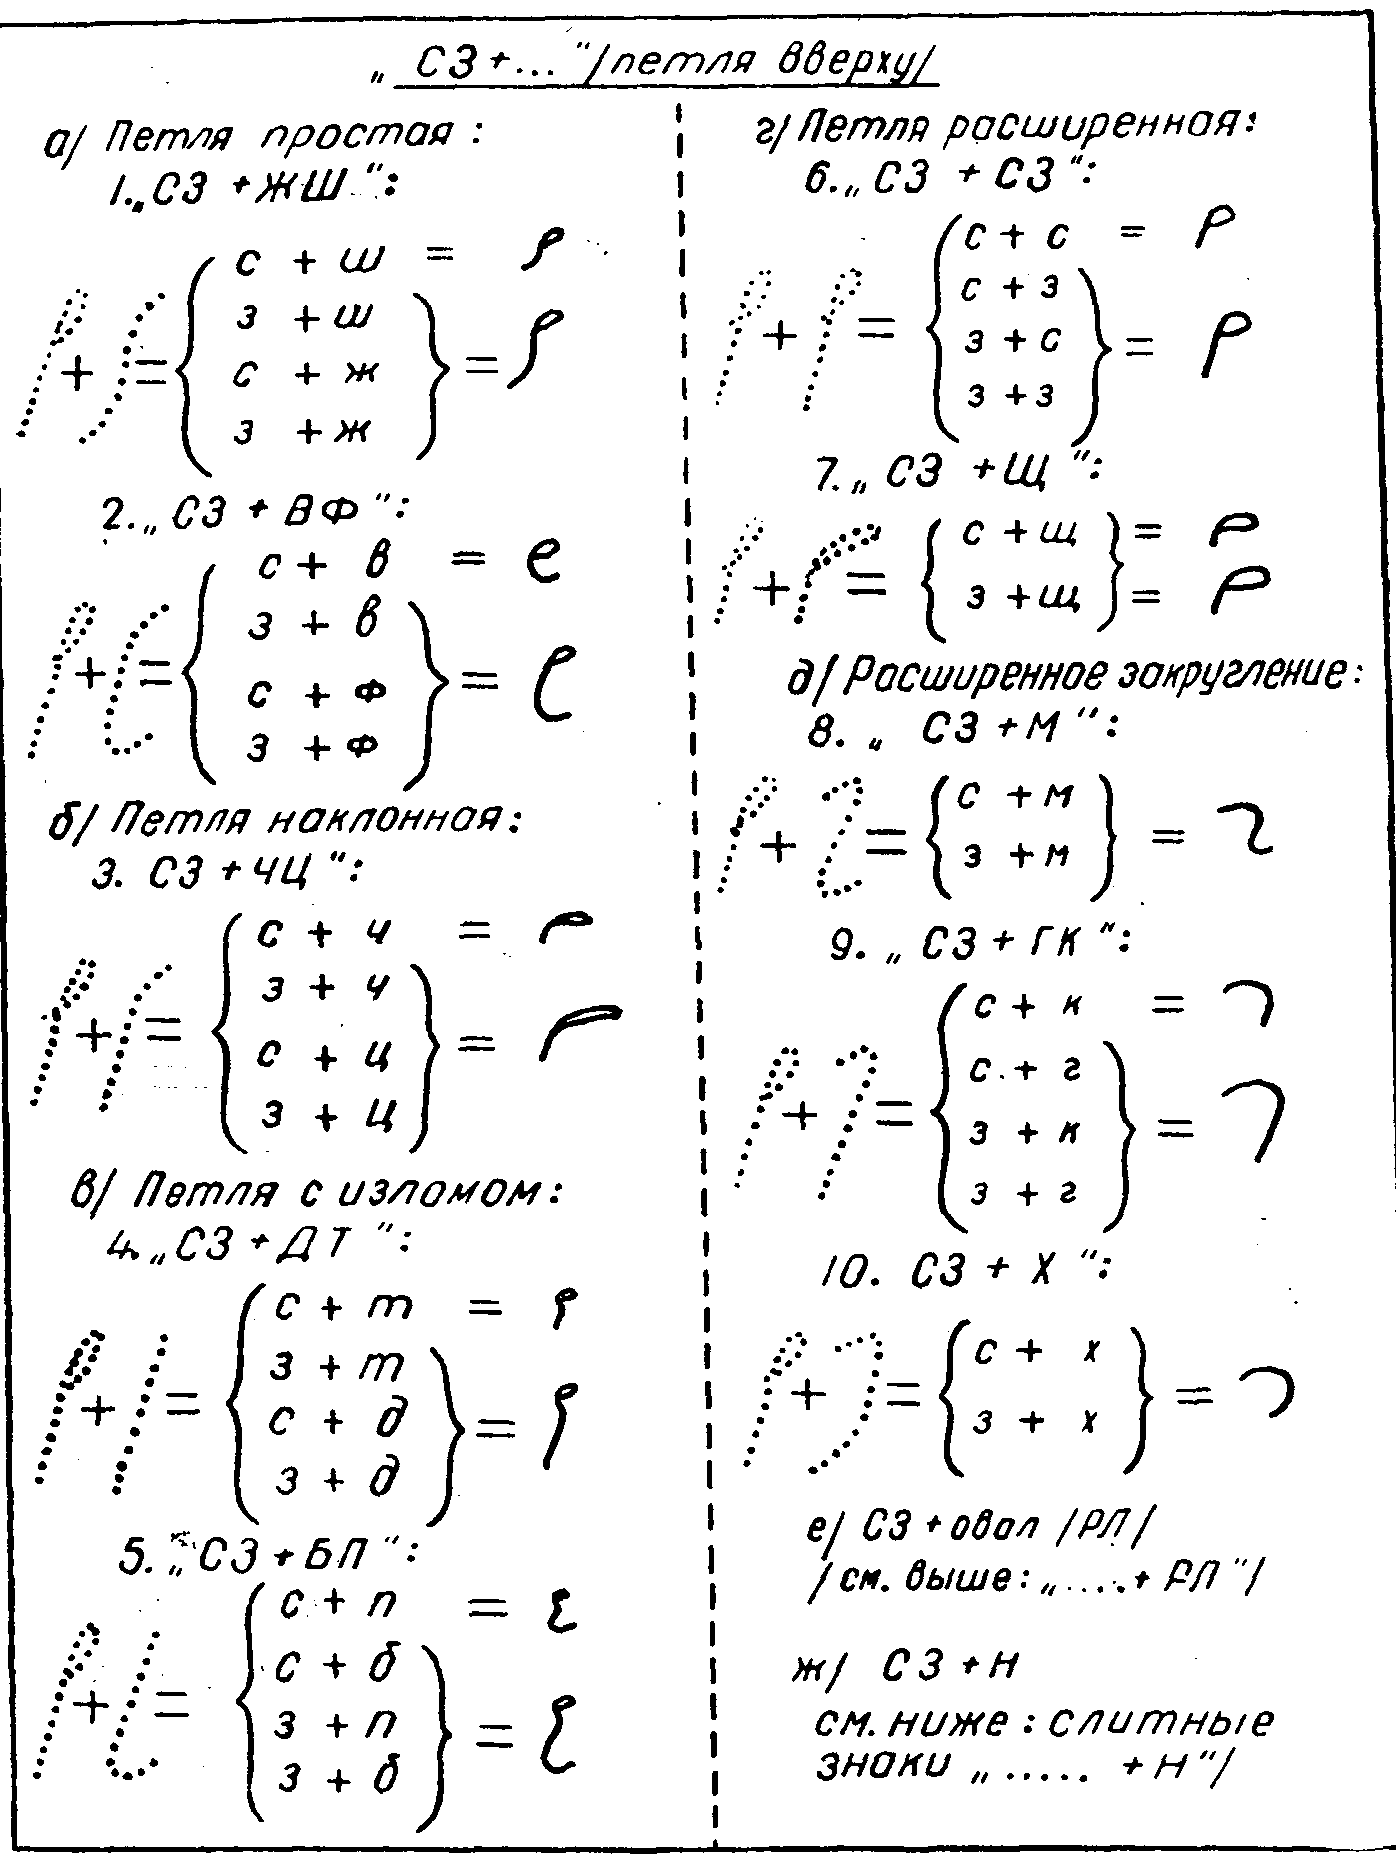 „ СЗ + ... "/петля вверху/
а/ Петля простая :
1. „СЗ + ЖШ ":
с + ш =
з + ш
с + ж
з + ж
+ = =
2. „ СЗ + ВФ ":
с + в =
з + в
с + ф
з + ф
+ = =
б/ Петля наклонная :
3. СЗ + ЧЦ ":
с + ч =
з + ч
с + ц
з + ц
+ = =
в/ Петля с изломом :
4. „ СЗ + ДТ ":
с + т =
з + т
с + д
з + д
+ = =
5. „ СЗ + БП ":
с + п =
с + б
з + п
з + б
+ = =
г/ Петля расширенная :
6. „ СЗ + СЗ ":
с + с =
с + з
з + с
з + з
+ = =
7. „ СЗ + Щ ":
с + щ =
з + щ =
+ =
д/ Расширенное закругление :
8. „ СЗ + М ":
с + м
з + м
+ = =
9. „ СЗ + ГК ":
с + к =
с + г
з + к
з + г
+ = =
10. СЗ + Х ":
с + х
з + х
+ = =
е/ СЗ + овал /РЛ/
/ см. выше : „ .... + РЛ "/
ж/ СЗ + Н
см. ниже : слитные
знаки „ ..... + Н "/